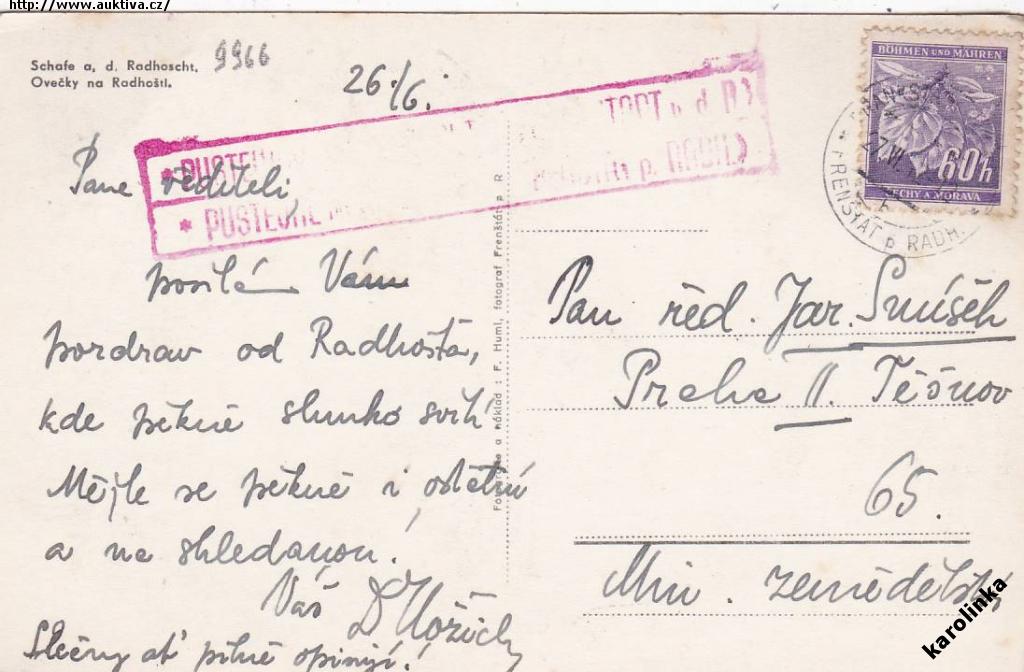 http://www.auktiva.cz/
Schafe a. d. Radhoscht.
Ovečky na Radhošti.
9966
26./6.
* PUSTEVNY
* PUSTEVNE
p. RADH.
Pane řediteli,
posílám Vám
pozdrav od Radhoště,
kde pěkně slunko svítí
Mějte se pěkně i ostatní
a na shledanou!
Váš D
Slečny ať pilně opisují!
Fotografie a náklad : F. Huml, fotograf Frenštát p. R.
BÖHMEN UND MÄHREN
60h
ČECHY A MORAVA
FRENŠTÁT p. RADH.
Pan řed. Jar. Smíšek
Praha II. Těšnov
65.
Min. zemědělství
karolinka